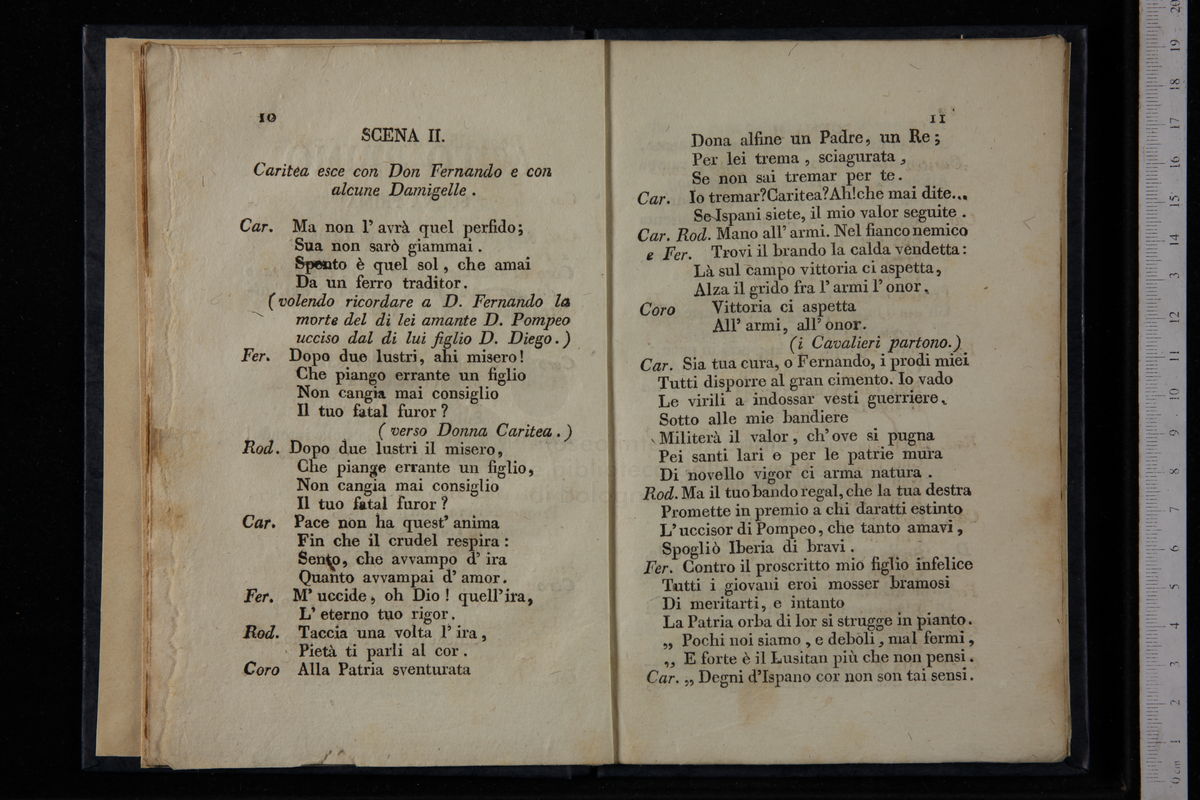 10
SCENA II.
Caritea esce con Don Fernando e con
alcune Damigelle .
Car. Ma non l' avrà quel perfido;
Sua non sarò giammai .
Spento è quel sol , che amai
Da un ferro traditor .
( volendo ricordare a D. Fernando la
morte del di lei amante D. Pompeo
ucciso dal di lui figlio D. Diego . )
Fer. Dopo due lustri, ahi misero!
Che piango errante un figlio
Non cangia mai consiglio
Il tuo fatal furor ?
( verso Donna Caritea . )
Rod. Dopo due lustri il misero,
Che piange errante un figlio,
Non cangia mai consiglio
Il tuo fatal furor ?
Car. Pace non ha quest' anima
Fin che il crudel respira :
Sento, che avvampo d' ira
Quanto avvampai d' amor .
Fer. M' uccide, oh Dio ! quell'ira,
L' eterno tuo rigor .
Rod. Taccia una volta l' ira ,
Pietà ti parli al cor .
Coro Alla Patria sventurata
11
Dona alfine un Padre, un Re ;
Per lei trema , sciagurata ,
Se non sai tremar per te .
Car. Io tremar?Caritea?Ah!che mai dite...
Se Ispani siete, il mio valor seguite .
Car. Rod. Mano all' armi. Nel fianco nemico
e Fer. Trovi il brando la calda vendetta :
Là sul campo vittoria ci aspetta,
Alza il grido fra l' armi l' onor .
Coro Vittoria ci aspetta
All' armi, all' onor.
(i Cavalieri partono.)
Car. Sia tua cura, o Fernando, i prodi miei
Tutti disporre al gran cimento. Io vado
Le virili a indossar vesti guerriere.
Sotto alle mie bandiere
Militerà il valor , ch' ove si pugna
Pei santi lari e per le patrie mura
Di novello vigor ci arma natura .
Rod. Ma il tuo bando regal, che la tua destra
Promette in premio a chi daratti estinto
L' uccisor di Pompeo, che tanto amavi ,
Spogliò Iberia di bravi .
Fer. Contro il proscritto mio figlio infelice
Tutti i giovani eroi mosser bramosi
Di meritarti, e intanto
La Patria orba di lor si strugge in pianto.
„ Pochi noi siamo , e deboli , mal fermi ,
„ E forte è il Lusitan più che non pensi .
Car. „ Degni d'Ispano cor non son tai sensi .